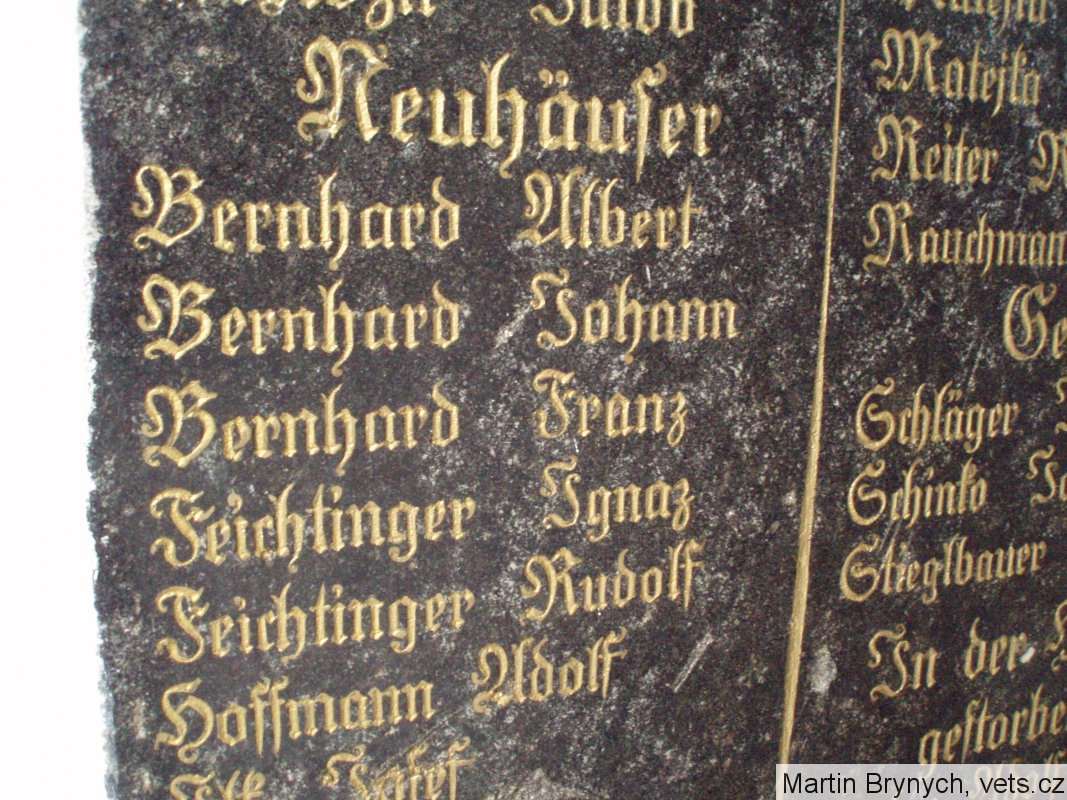 Jakob
Neuhäuser
Bernhard Albert
Bernhard Johann
Bernhard Franz
Feichtinger Ignaz
Feichtinger Rudolf
Hoffmann Adolf
Josef
Matejka
Reiter
Rauchman
Schläger
Schinko
Stieglbauer
In der
gestorbe
Martin Brynych, vets.cz